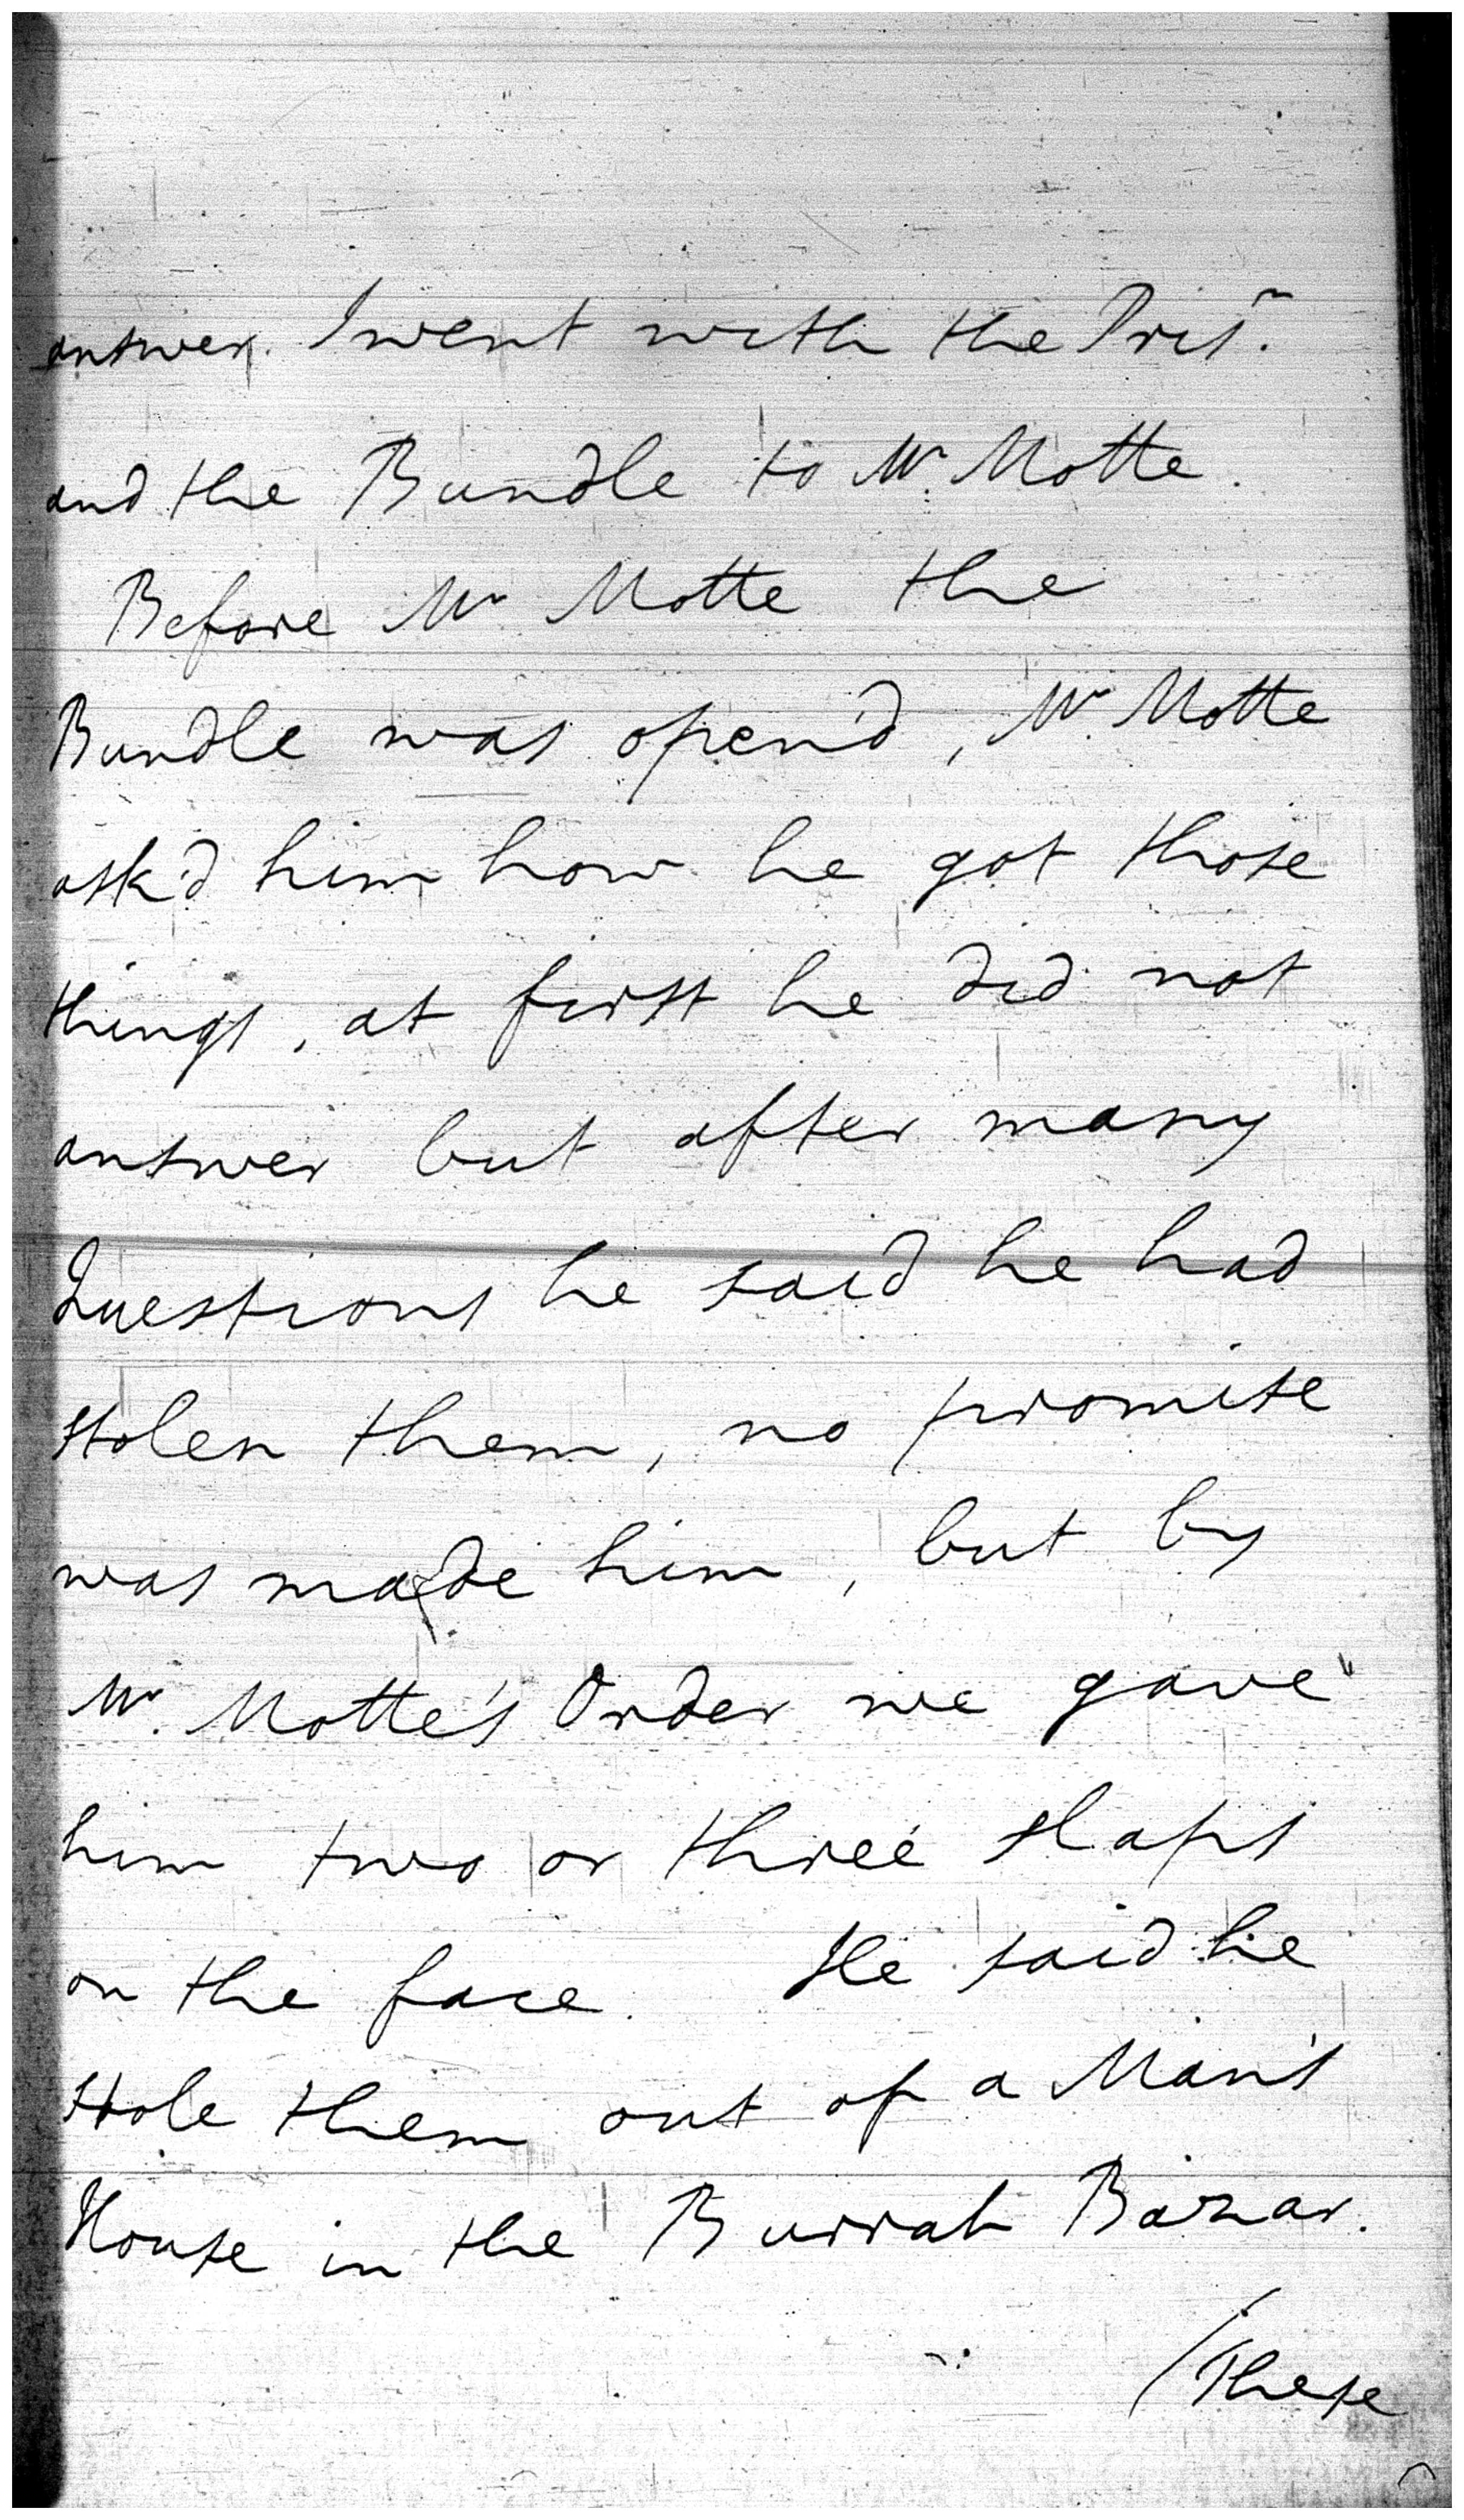 answer. I went with the Pris.r
and the Bundle to Mr. Motte.
Before Mr Motte the
Bundle was open'd, Mr. Motte
ask'd him how he got those
things, at first he did not
answer but after many
Questions he said he had
stolen them, no promise
was made him, but by
Mr. Motte's Order we gave
him two or three slaps
on the face. He said he
stole them out of a Man's
House in the Burrah Bazar.
/These